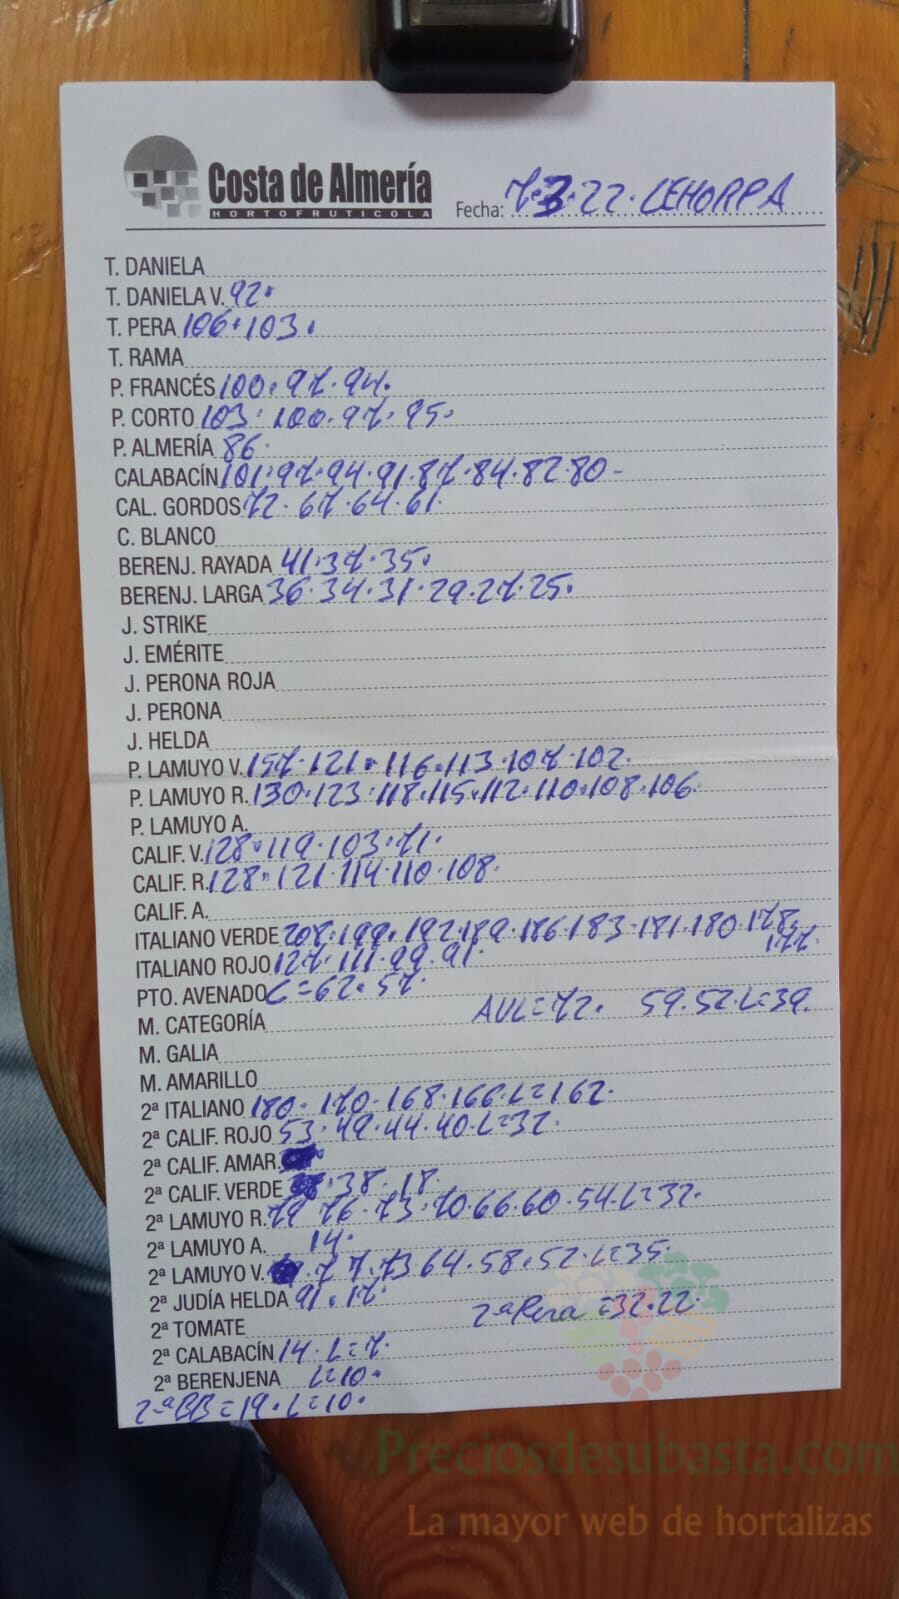 Costa de Almería
HORTOFRUTICOLA
Fecha: 7.3.22. LEHORPA
T. DANIELA
T. DANIELA V. 92.
T. PERA 106.103.
T. RAMA
P. FRANCÉS 100.97.94.
P. CORTO 103.100.97.95.
P. ALMERÍA 86.
CALABACÍN 101.97.94.91.87.84.82.80-
CAL. GORDOS 72.67.64.61.
C. BLANCO
BERENJ. RAYADA 41.37.35.
BERENJ. LARGA 36.34.31.29.27.25.
J. STRIKE
J. EMÉRITE
J. PERONA ROJA
J. PERONA
J. HELDA
P. LAMUYO V. 157.121.116.113.107.102.
P. LAMUYO R. 130.123.118.115.112.110.108.106.
P. LAMUYO A.
CALIF. V. 128.119.103.71.
CALIF. R. 128.121.114.110.108.
CALIF. A.
ITALIANO VERDE 208.199.192.189.186.183.181.180.178.
177.
ITALIANO ROJO 127.111.99.91.
PTO. AVENADO C=62.57.
M. CATEGORÍA AVL=72. 59.52.L=39.
M. GALIA
M. AMARILLO
2ª ITALIANO 180.170.168.166.L=162.
2ª CALIF. ROJO 53.49.44.40.L=32.
2ª CALIF. AMAR.
2ª CALIF. VERDE 38.18.
2ª LAMUYO R. 79 76.73.70.66.60.54.L=32.
2ª LAMUYO A. 14.
2ª LAMUYO V. 77.73 64.58.52.L=35.
2ª JUDÍA HELDA 91.17.
2ª TOMATE 2ª Pera =32.22.
2ª CALABACÍN 14.L=7.
2ª BERENJENA L=10.
2ªBB=19.L=10.
Preciosdesubasta.com
La mayor web de hortalizas